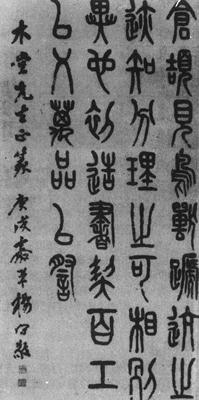 倉頡見鳥獸蹏迒之
迹知分理之可相別
異也初造書契百工
以乂萬品以詧
木堂先生正篆 庚戌嘉平楊守敬